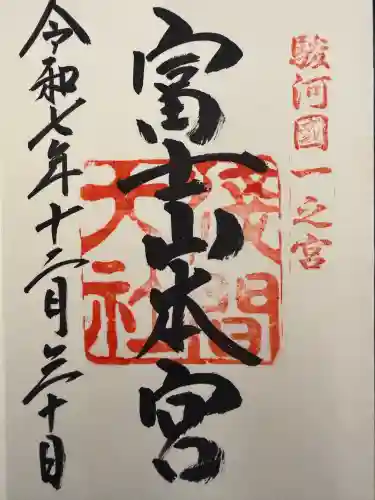 駿河國一之宮
富士山本宮
浅間
大社
令和七年十二月三十日